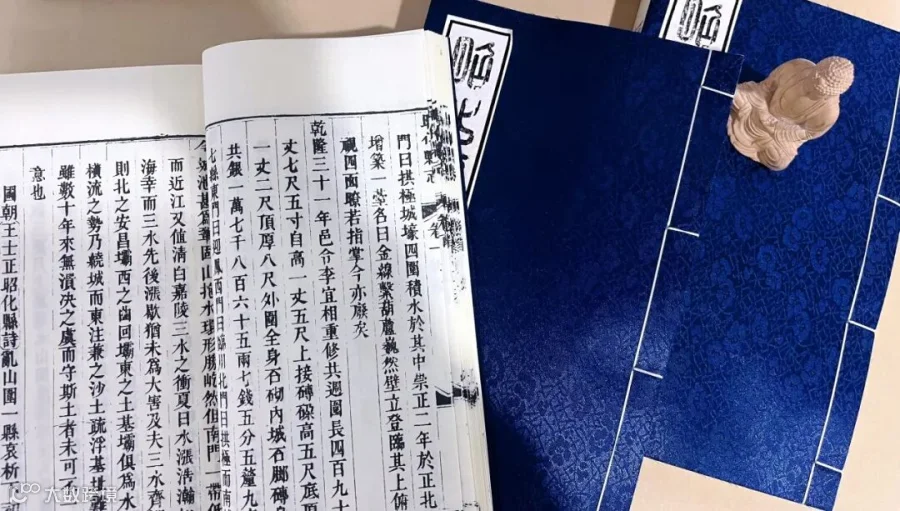 門曰拱極城壕四圍積水於其中崇正二年於正北
增築一臺名曰金線繫葫蘆巍然壁立登臨其上俯
視四面瞭若指掌今亦廢矣
乾隆三十一年邑令李宜相重修共週圍長四百九十
丈七尺五寸自高一丈五尺上接磚磔高五尺底厚
一丈二尺頂厚八尺外圍全身石砌內城石腳磚身
共銀一萬七千八百六十五兩七錢五分五釐九
七絲東門曰迎鳳西門曰臨川北門曰拱極而南
今城池甚為鞏固山指水環形勝屹然但南門一帶低
而近江又值清白嘉陵三水之衝夏日水漲浩瀚
海幸而三水先後漲歇猶未為大害及夫三水齊
則北之安昌壩西之齒回壩東之土基壩俱為水
橫流之勢乃繞城而東注兼之沙土疏浮基址
雖數十年來無潰決之虞而守斯土者未可
意也
國朝王士正昭化縣詩亂山圍一縣哀析
大數跨境